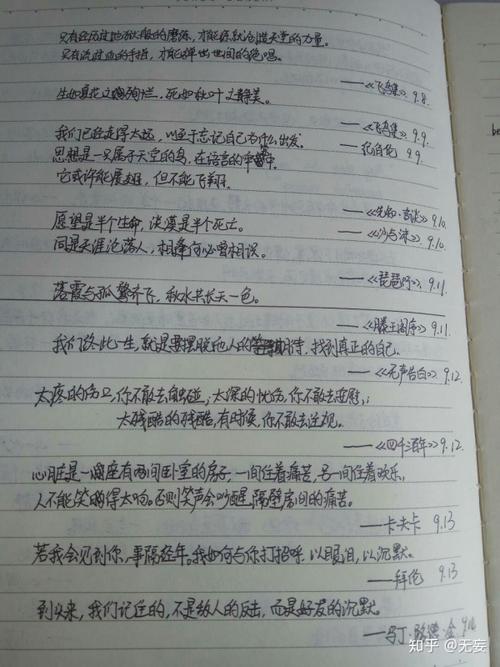 只有经历过地狱般的磨练，才能练就创造天堂的力量。
只有流过血的手指，才能弹出世间的绝唱。
——《飞鸟集》 9.8
生如夏花之绚烂，死如秋叶之静美。
——《飞鸟集》 9.9
我们已经走得太远，以至于忘记自己为什么出发。
——纪伯伦 9.9
思想是一只属于天空的鸟，在语言的牢笼中
它或许能展翅，但不能飞翔。
——《先知·言谈》 9.10
愿望是半个生命，淡漠是半个死亡。
——《沙与沫》 9.10
同是天涯沦落人，相逢何必曾相识。
——《琵琶行》 9.11
落霞与孤鹜齐飞，秋水共长天一色。
——《滕王阁序》 9.11
我们终此一生，就是要摆脱他人的期待，找到真正的自己。
——《无声告白》 9.12
太疼的伤口，你不敢去触碰；太深的忧伤，你不敢去安慰；
太残酷的残酷，有时候，你不敢去注视。
——《四千酒年》 9.12
心脏是一座有两间卧室的房子，一间住着痛苦，另一间住着欢乐，
人不能笑得太响。否则笑声会吵醒隔壁房间的痛苦。
——卡夫卡 9.13
若我会见到你，事隔经年。我如何与你打招呼，以眼泪，以沉默。
——拜伦 9.13
到头来，我们记住的，不是敌人的反击，而是好友的沉默。
——马丁·路德·金
bec
知乎 @无妄